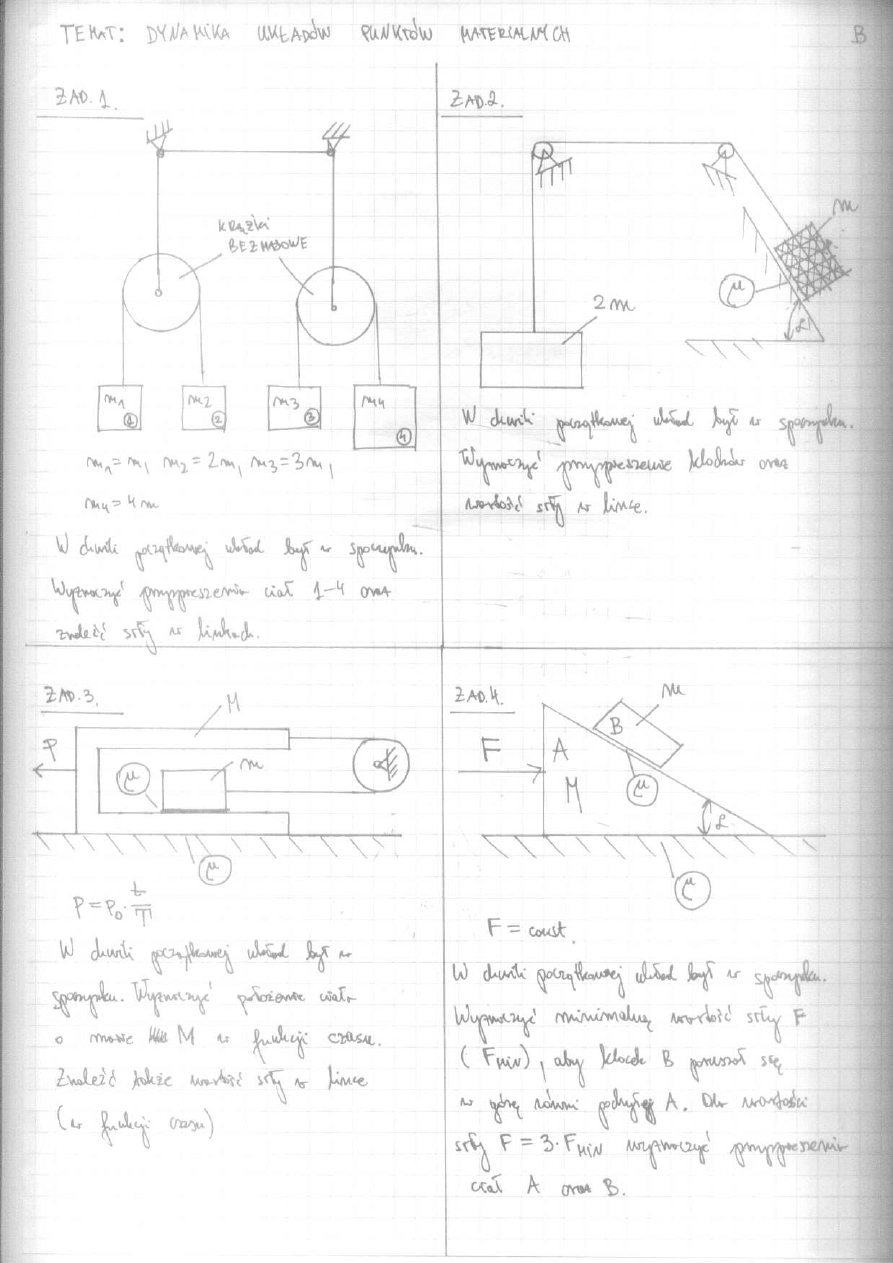 TEMAT: DYNAMIKA UKŁADÓW PUNKTÓW MATERIALNYCH
B
ZAD. 1.
KRĄŻKI
BEZMASOWE
m1
1
m2
2
m3
3
m4
4
m1=m, m2=2m, m3=3m,
m4=4m
W chwili początkowej układ był w spoczynku.
Wyznaczyć przyspieszenia ciał 1-4 oraz
znaleźć siły w linkach.
ZAD.2.
m
μ
α
2m
W chwili początkowej układ był w spoczynku.
Wyznaczyć przyspieszenie klocków oraz
wartość siły w lince.
ZAD.3.
M
P
m
μ
μ
P=P0·t/T
W chwili początkowej układ był w
spoczynku. Wyznaczyć położenie ciała
o masie M w funkcji czasu.
Znaleźć także wartość siły w lince
(w funkcji czasu)
ZAD.4.
m
B
F
A
M
μ
α
μ
F = const.
W chwili początkowej układ był w spoczynku.
Wyznaczyć minimalną wartość siły F
(FMIN), aby klocek B poruszał się
w górę równi pochyłej A. Dla wartości
siły F = 3·FMIN wyznaczyć przyspieszenia
ciał A oraz B.